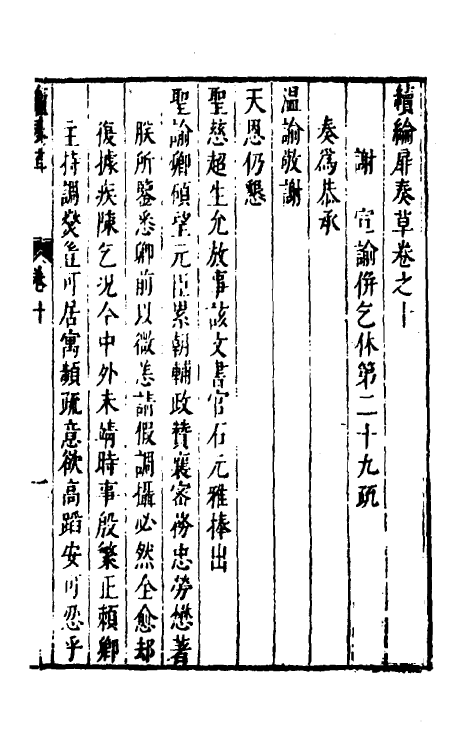 續綸扉奏草卷之十
謝　宣諭併乞休第二十九疏
奏爲恭承
溫諭敬謝
天恩仍懇
聖慈超生允放事該文書官石元雅捧出
聖諭卿碩望元臣累朝輔政贊襄密務忠勞懋著
朕所鑒悉卿前以微恙請假調攝必然全愈却
復據疾陳乞況今中外未靖時事殷繁正賴卿
主持調燮豈可居寓頻疏意欲高蹈安可恝乎
續奏草　卷十　一